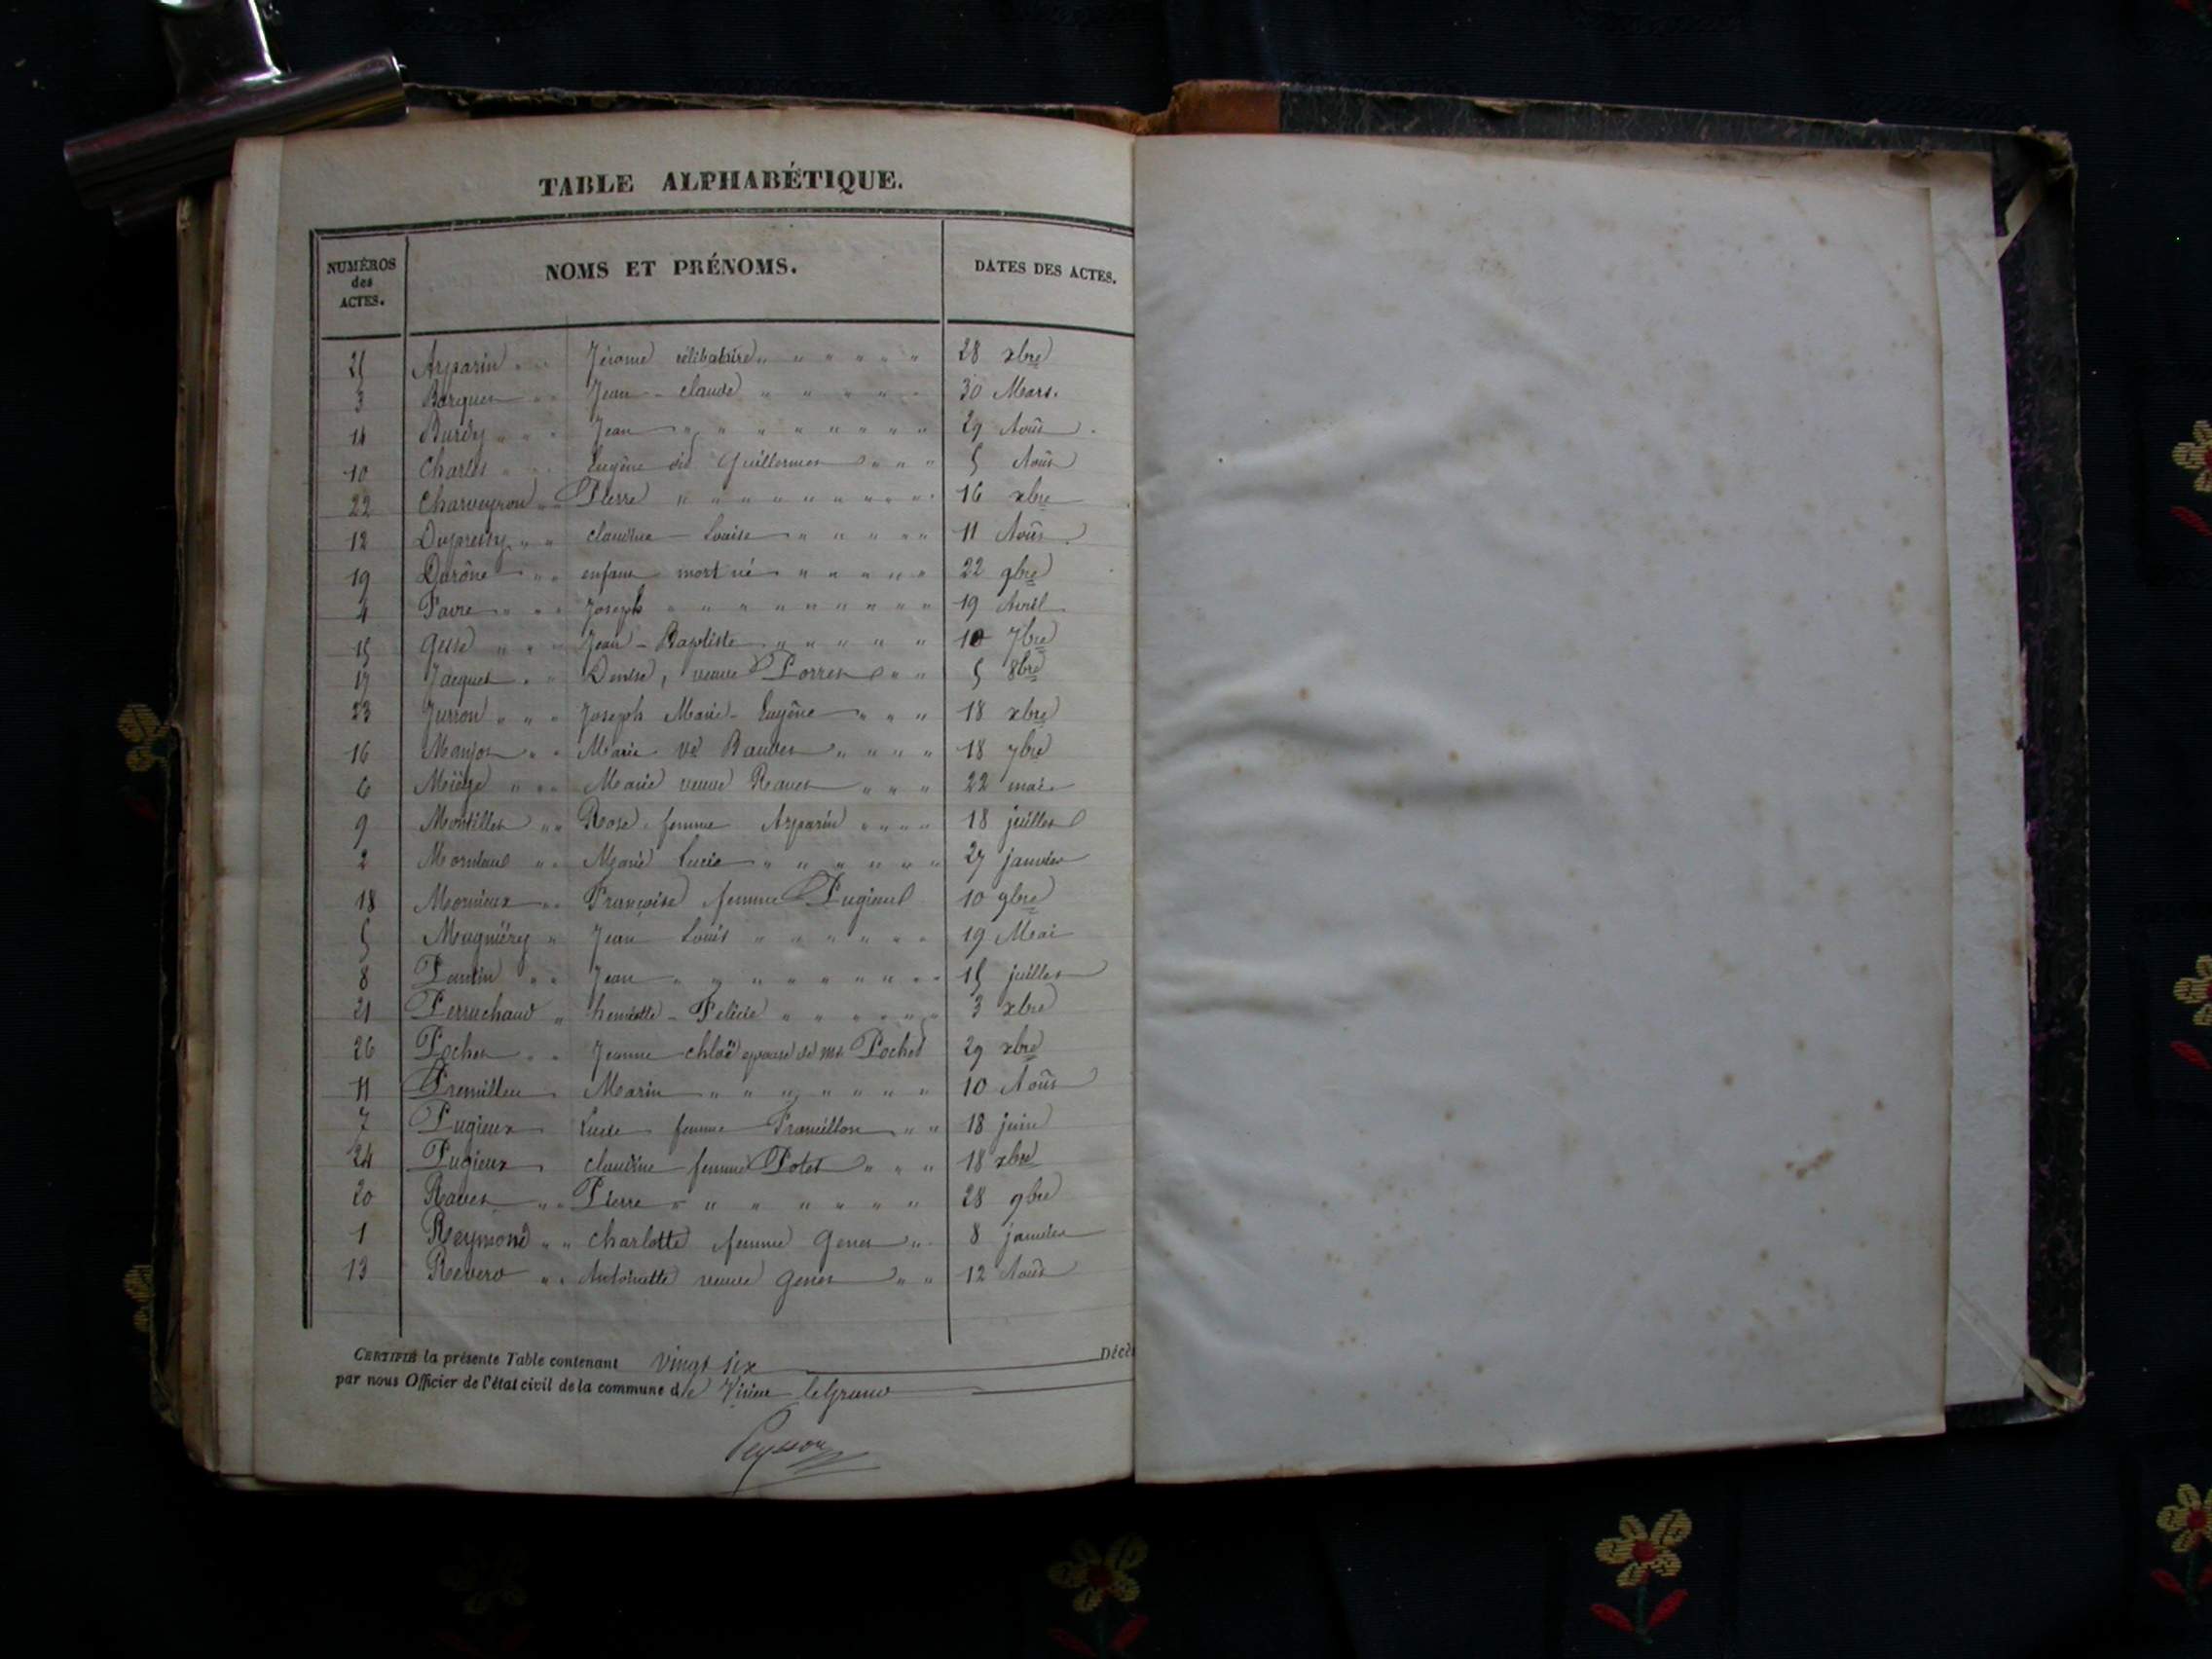 TABLE ALPHABÉTIQUE.
NUMÉROS des ACTES. NOMS ET PRÉNOMS. DATES DES ACTES.
25 Arparin " " Jérome célibataire " " " " " 28 xbre
3 Barquet " " Jean - claude " " " " " 30 Mars.
14 Burdy " " " Jean " " " " " " " " 29 Août
10 Charles " " " Eugène dit Guillermet " " " 5 Août
22 Charveyron " " Pierre " " " " " " " " 16 xbre
12 Dupressy " " claudine Louise " " " " " 11 Août
19 Durône " " enfant mort né " " " " " 22 9bre
4 Favre " " " Joseph " " " " " " " " 19 Avril
15 " " " Jean - Baptiste " " " " " 10 7bre
17 Jacquet " " Denise, veuve Porret " " 5 8bre
23 Jurron " " " Joseph Marie - Eugène " " " 18 xbre
16 Manjot " " Marie Ve Baudet " " " " 18 7bre
6 Miège " " " Marie veuve Ravet " " " 22 mai
9 Montillet " " Rose femme Arparin " " " " 18 juillet
2 " " Marie Lucie " " " " " " 27 janvier
18 Mornieux " " Françoise femme Pugieux 10 9bre
5 Mugniéry " Jean Louis " " " " " " 19 Mai
8 Pantin " " Jean " " " " " " " " 15 juillet
21 Perruchaud " henriette - Felicie " " " " " " 3 xbre
26 Pochet " " Jeanne chloë epouse de Mr. Pochet 29 xbre
11 Premillieu " Marin " " " " " " " 10 Août
7 Pugieux Lucie femme Francillon " " 18 juin
24 Pugieux " claudine femme Potet " " " 18 xbre
20 Ravet " " Pierre " " " " " " " 28 9bre
1 Reymond " " charlotte femme Genet " " 8 janvier
13 Revero " " Antoinette veuve Genet " " 12 Août
CERTIFIÉ la présente Table contenant vingt six Décè
par nous Officier de l'état civil de la commune de Virieu leGrand
Peysson